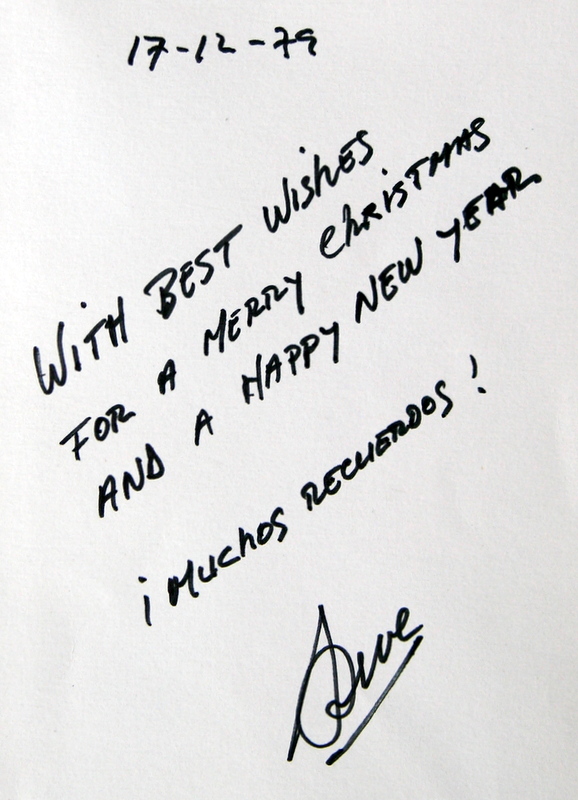 17-12-79
WiTH BEST WiShES
FOR A MERRY ChRiSTMAS
AND A HAPPY NEW YEAR
¡MUChOS RECUERDOS!